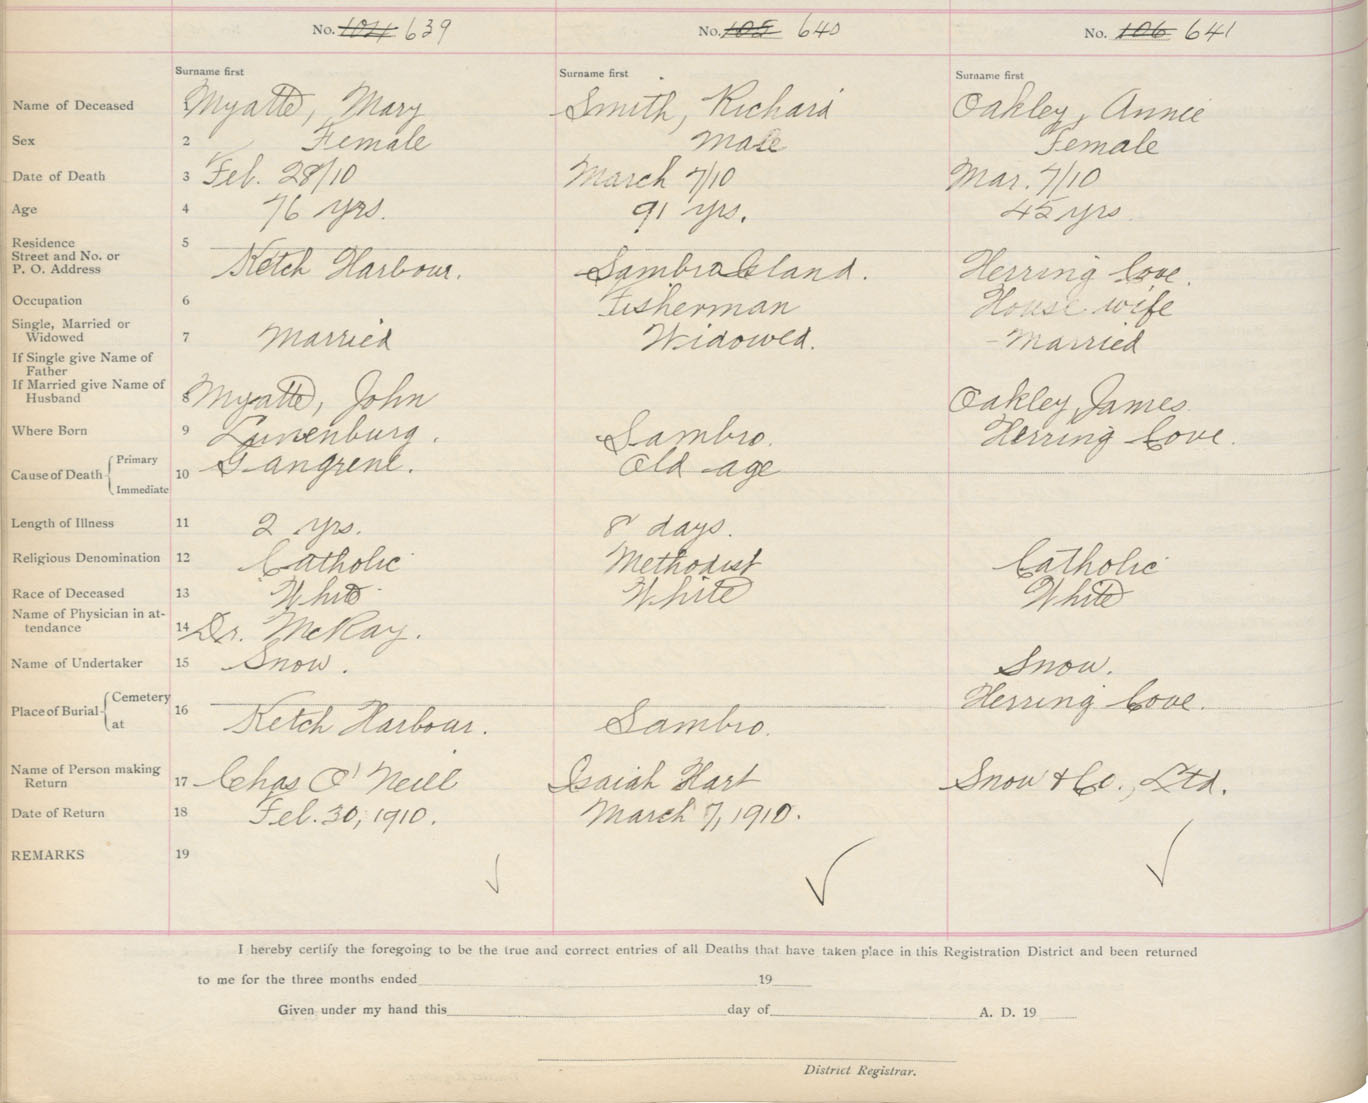 No. 104 639
No. 105 640
No. 106 641
Surname first Surname first Surname first
Name of Deceased 1 Myatte, Mary Smith, Richard Oakley, Annie
Sex 2 Female Male Female
Date of Death 3 Feb. 28/10 March 7/10 Mar. 7/10
Age 4 76 yrs. 91 yrs. 45 yrs
Residence 5
Street and No. or
P. O. Address Ketch Harbour. Sambro Island. Herring Cove.
Occupation 6 Fisherman House wife
Single, Married or
Widowed 7 Married Widowed. Married
If Single give Name of
Father
If Married give Name of
Husband 8 Myatte, John Oakley, James
Where Born 9 Lunenburg. Sambro. Herring Cove.
Cause of Death Primary Gangrene. Old age
10
Immediate
Length of Illness 11 2 yrs. 8 days.
Religious Denomination 12 Catholic Methodist Catholic
Race of Deceased 13 White White White
Name of Physician in at-
tendance 14 Dr. McKay.
Name of Undertaker 15 Snow. Snow.
Place of Burial Cemetery 16 Herring Cove.
at Ketch Harbour. Sambro.
Name of Person making
Return 17 Chas O'Neill Isaiah Hart Snow & Co., Ltd.
Date of Return 18 Feb. 30, 1910. March 7, 1910.
REMARKS 19
I hereby certify the foregoing to be the true and correct entries of all Deaths that have taken place in this Registration District and been returned
to me for the three months ended 19
Given under my hand this day of A. D. 19
District Registrar.